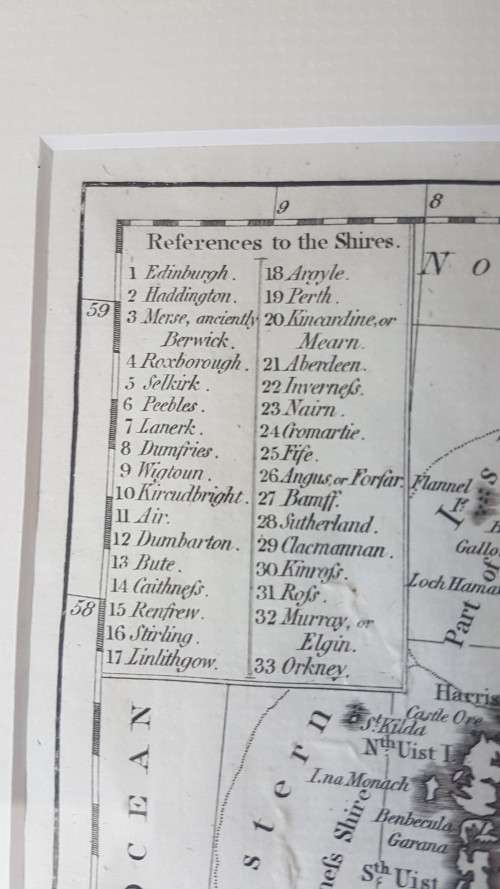 9
8
59
58
References to the Shires.
1 Edinburgh.
2 Haddington.
3 Merse, anciently
Berwick.
4 Roxborough.
5 Selkirk.
6 Peebles.
7 Lanerk.
8 Dumfries.
9 Wigtoun.
10 Kircudbright.
11 Air.
12 Dumbarton.
13 Bute.
14 Caithneſs.
15 Renfrew.
16 Stirling.
17 Linlithgow.
18 Argyle.
19 Perth.
20 Kincardine, or
Mearn.
21 Aberdeen.
22 Inverneſs.
23 Nairn.
24 Cromartie.
25 Fife.
26 Angus, or Forfar.
27 Bamff.
28 Sutherland.
29 Clacmannan.
30 Kinroſs.
31 Roſs.
32 Murray, or
Elgin.
33 Orkney.
N O
Flannel
I.s
Part of
Gallo
Loch Hama
Harris
Castle Ore
St. Kilda
Nth Uist I.
I.na Monach
Benbecula
Garana
Sth Uist
neſs Shire
stern
OCEAN